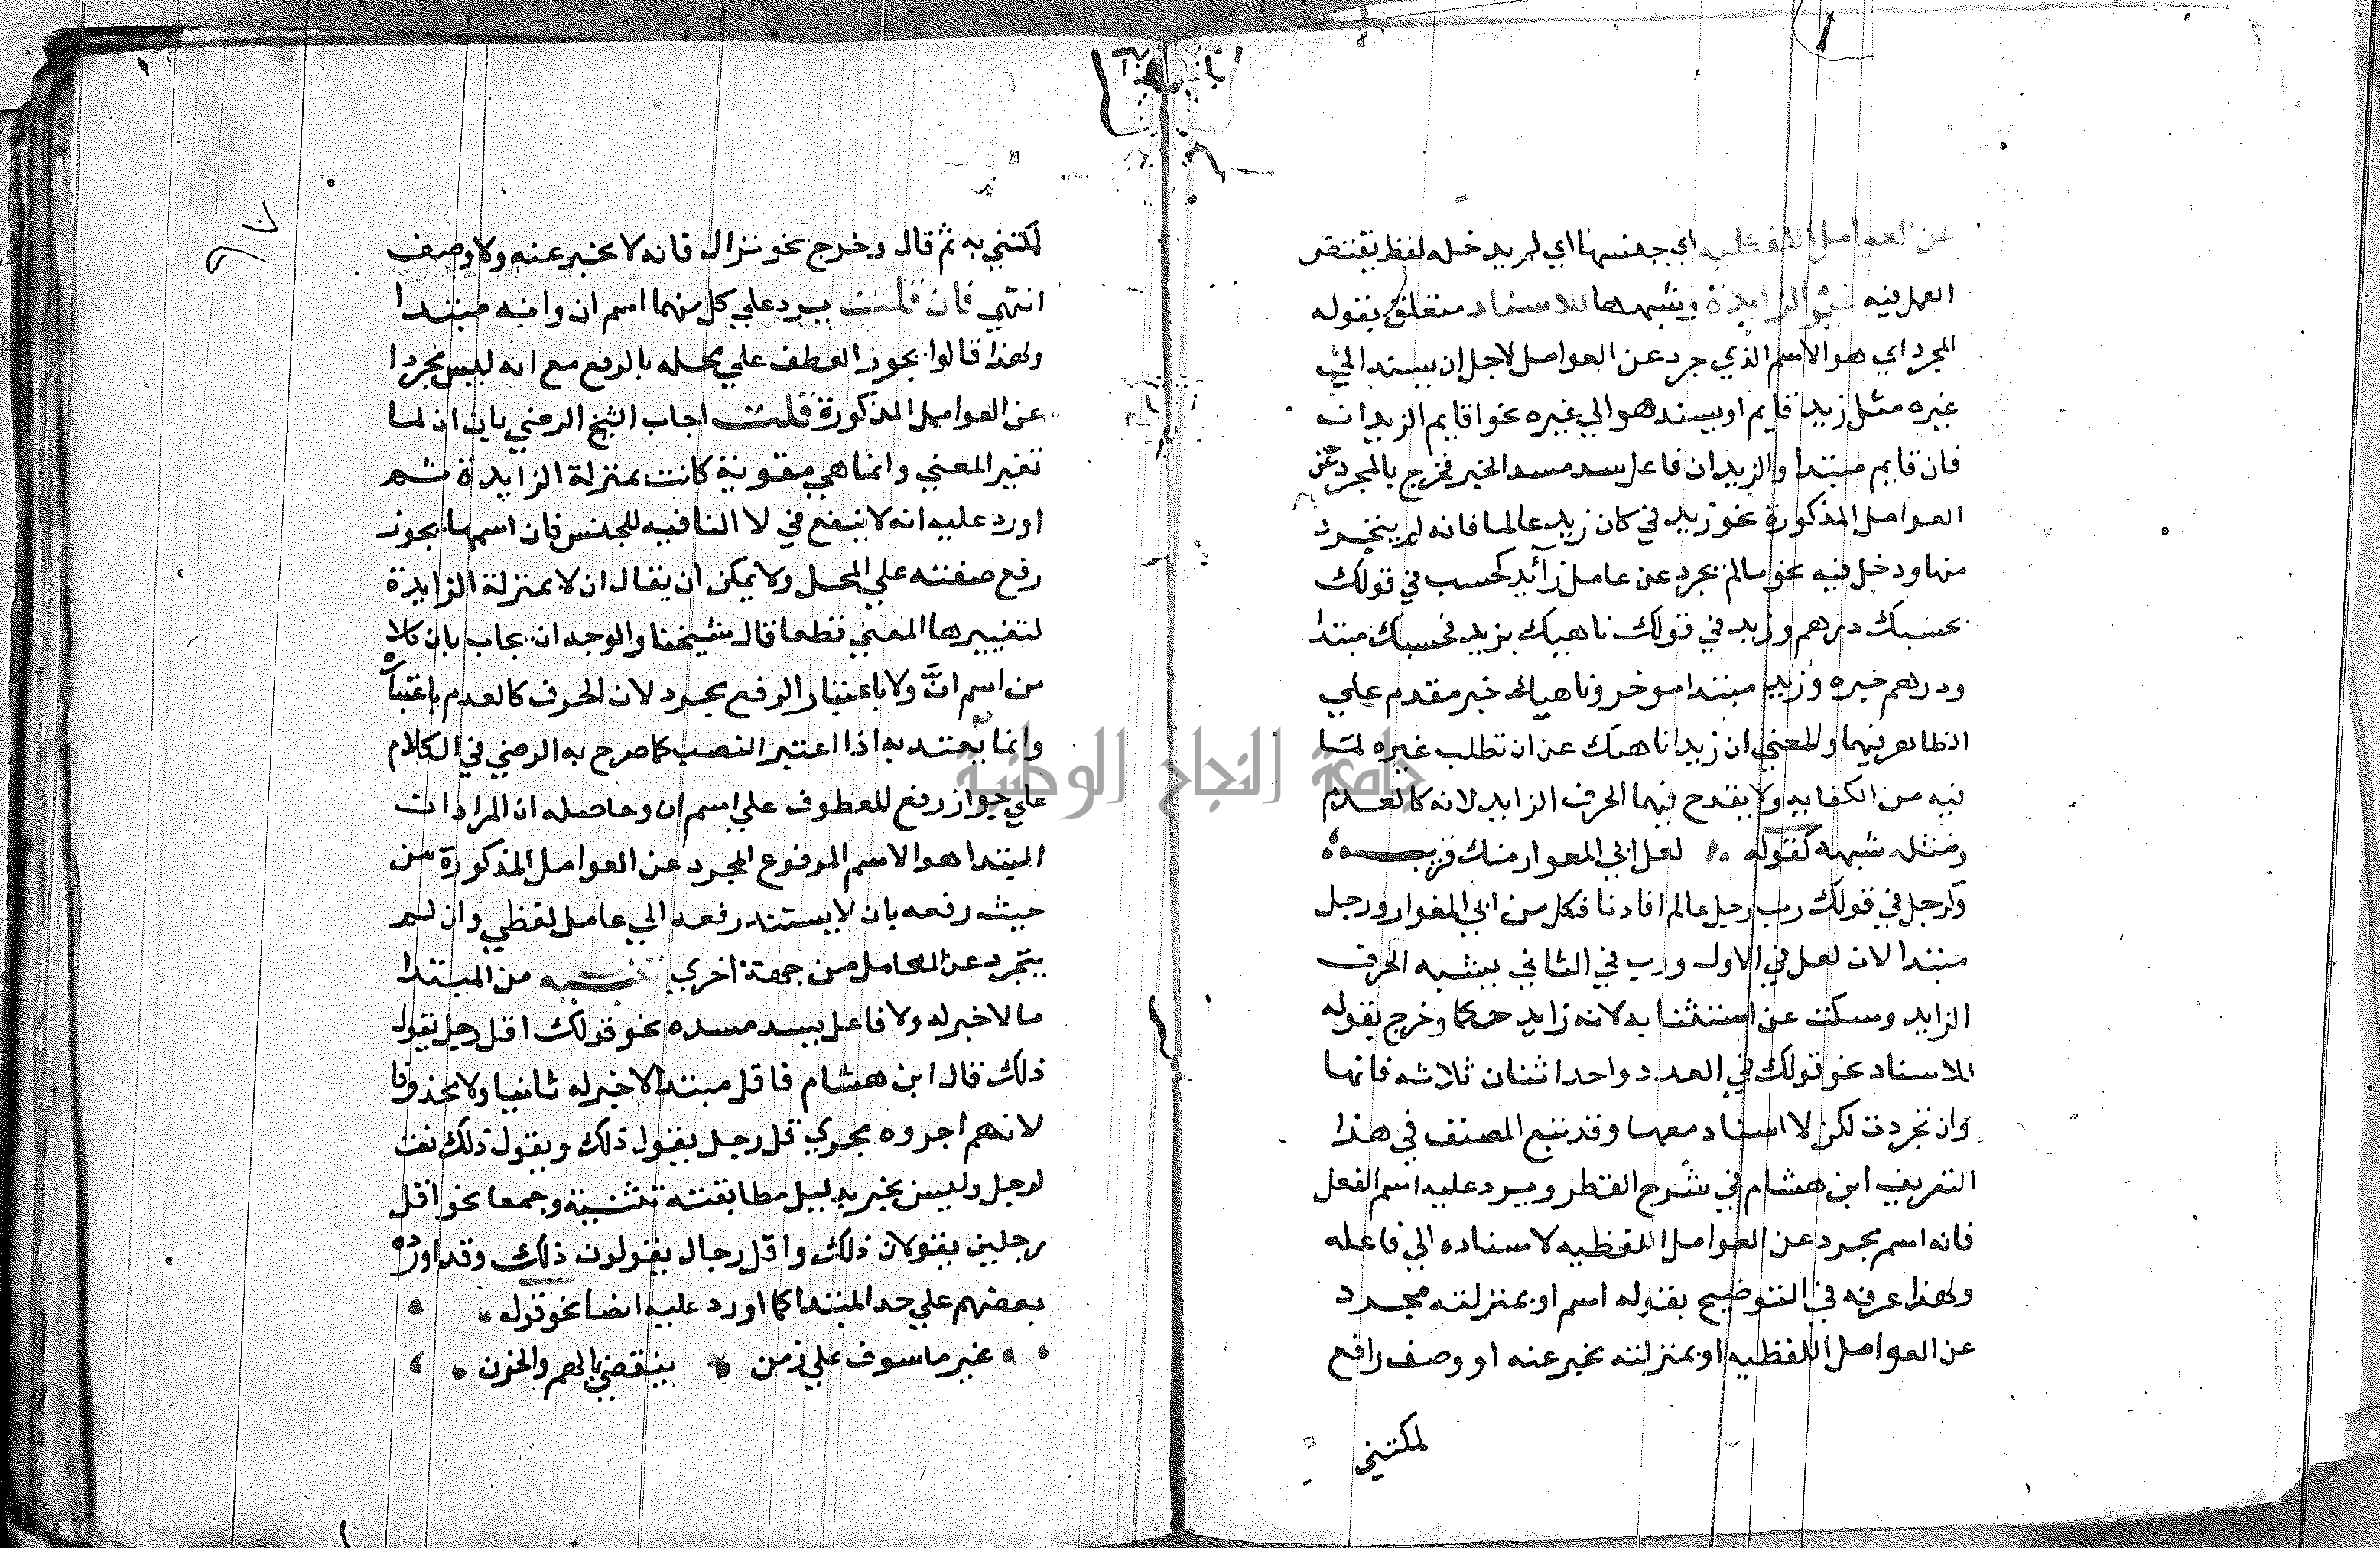 عن العوامل اللفظيه اي جنسها اي لم يدخله لفظ يقتضى
العمل فيه غير الزايدة وشبهها للاسناد متعلق بقوله
المجرد اي هو الاسم الذي جرد عن العوامل لاجل ان يسند الي
غيره مثل زيد قايم او يسند هو الي غيره نحو اقايم الزيدان
فان قايم مبتدا والزيدان فاعل سد مسد الخبر فخرج بالمجرد عن
العوامل المذكورة نحو زيد في كان زيد عالما فانه لم يتجرد
منها ودخل فيه نحو مالم يجرد عن عامل زائد كحسب في قولك
بحسبك درهم وزيد في قولك ناهيك بزيد فحسبك مبتدا
ودرهم خبره وزيد مبتدا موخر وناهيك خبر مقدم علي
الظاهر فيهما والمعني ان زيدا ناهيك عن ان تطلب غيره لما
فيه من الكفايه ولا يقدح فيهما الحرف الزايد لانه كالعدم
ومثله شبهه كقوله لعل ابي المغوار منك قريب
وكرجل في قولك رب رجل عالم افادنا فكل من ابي المغوار ورجل
مبتدا لان لعل في الاول ورب في الثاني يشبه الحرف
الزايد وسكت عن استثنا به لانه زايد حكما وخرج بقوله
للاسناد نحو قولك في العدد واحد اثنان ثلاثه فانها
وان تجردت لكن لا اسناد معها وقد تبع المصنف في هذا
التعريف ابن هشام في شرح القطر ويرد عليه اسم الفعل
فانه اسم مجرد عن العوامل اللفظيه لاسناده الي فاعله
ولهذا عرفه في التوضيح بقوله اسم او بمنزلته مجرد
عن العوامل اللفظيه او بمنزلته مخبر عنه او وصف رافع
لمكتفي
لمكتفي به ثم قال وخرج نحو نزال فانه لا مخبر عنه ولا وصف
انتهي فان قلت يرد علي كل منهما اسم ان وانه مبتدا
ولهذا قالوا يجوز العطف علي محله بالرفع مع انه ليس مجردا
عن العوامل المذكورة قلت اجاب الشيخ الرضي بان ان لما
تغير المعني وانما هي مقوية كانت بمنزلة الزايدة ثم
اورد عليه انه لا ينفع في لا النافيه للجنس فان اسمها يجوز
رفع صفته علي المحل ولا يمكن ان يقال ان لا بمنزلة الزايدة
لتغييرها المعني قطعا قال شيخنا والوجه ان يجاب بان كلا
من اسم ان ولا باعتبار الرفع مجرد لان الحرف كالعدم باعتباره
وانما يعتد به اذا اعتبر النصب كما صرح به الرضي في الكلام
علي جواز رفع المعطوف علي اسم ان وحاصله ان المراد ان
المبتدا هو الاسم المرفوع المجرد عن العوامل المذكورة من
حيث رفعه بان لا يستند رفعه الي عامل لفظي وان لم
يتجرد عن العامل من جهة اخري تنبيه من المبتدا
ما لا خبر له ولا فاعل يسد مسده نحو قولك اقل رجل يقول
ذلك قال ابن هشام فاقل مبتدا لا خبر له ثانيا ولا محذوفا
لانهم اجروه مجري قل رجل يقول ذلك ويقول ذلك نعت
لرجل وليس بخبر بدليل مطابقته تثنية وجمعا نحو اقل
رجلين يقولان ذلك واقل رجال يقولون ذلك وقد اورد
بعضهم علي حد المبتدا كما اورد عليه ايضا نحو قوله
غير ماسوف علي زمن ينقضي بالهم والحزن
جامعة النجاح الوطنية